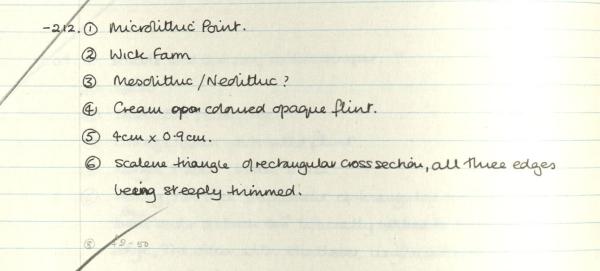 -212. ① Microlithic Point.
② Wick Farm
③ Mesolithic/Neolithic?
④ Cream opa coloured opaque flint.
⑤ 4cm x 0.9cm.
⑥ Scalene triangle of rectangular cross section, all three edges
being steeply trimmed.
⑧ 49-50